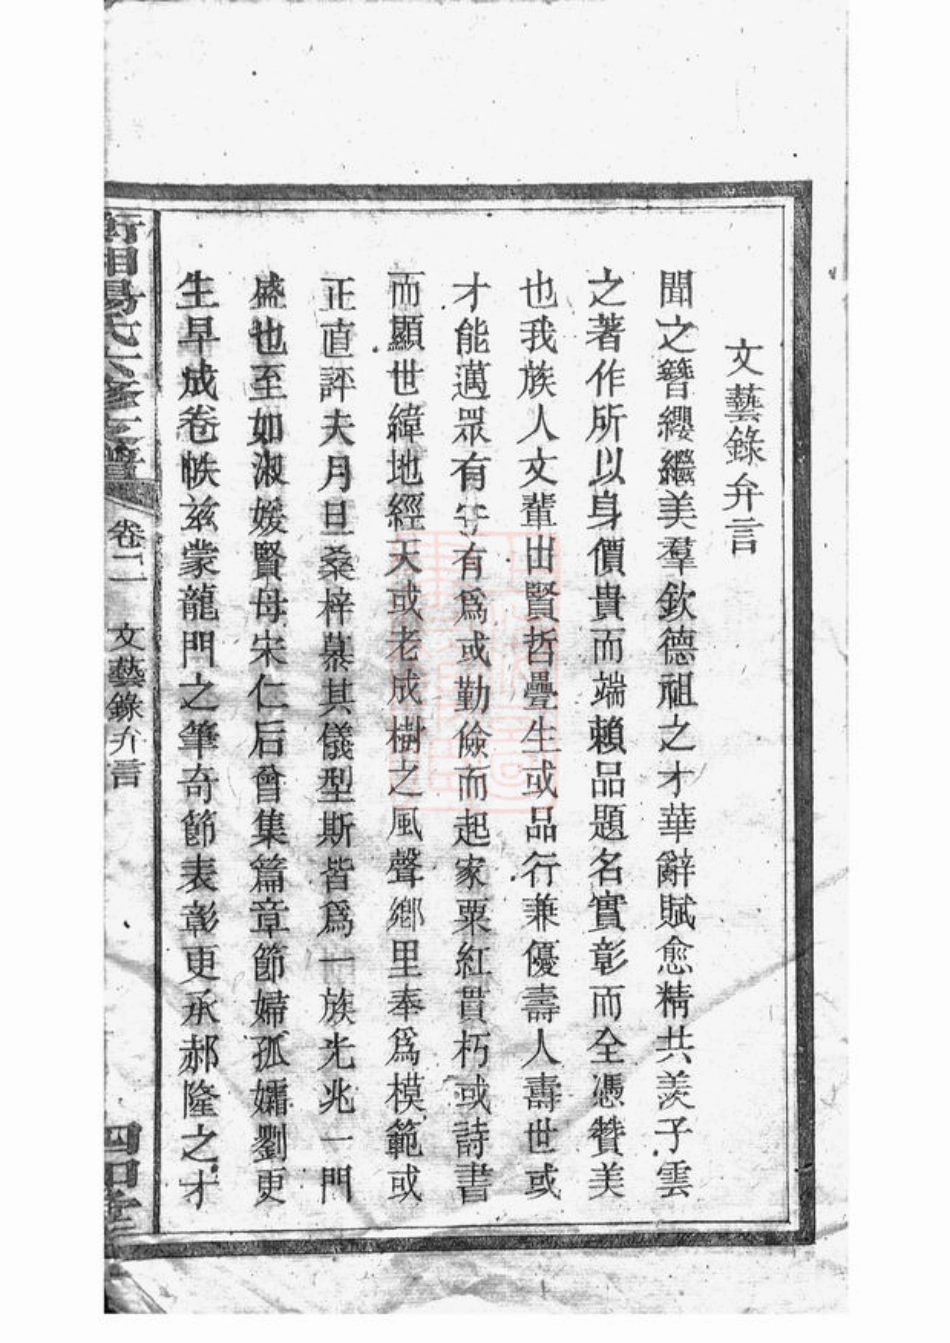 文藝錄弁言
聞之簪纓繼美羣欽德祖之才華辭賦愈精共羨子雲
之著作所以身價貴而端賴品題名實彰而全憑贊美
也我族人文輩出賢哲疊生或品行兼優壽人壽世或
才能邁眾有守有爲或勤儉而起家粟紅貫朽或詩書
而顯世緯地經天或老成樹之風聲鄉里奉爲模範或
正直評夫月旦桑梓慕其儀型斯皆爲一族光兆一門
盛也至如淑媛賢母宋仁后曾集篇章節婦孤孀劉更
生早成卷帙茲蒙龍門之筆奇節表彰更承郝隆之才
衡湘楊氏六修支譜 卷二 文藝錄弁言 四知堂